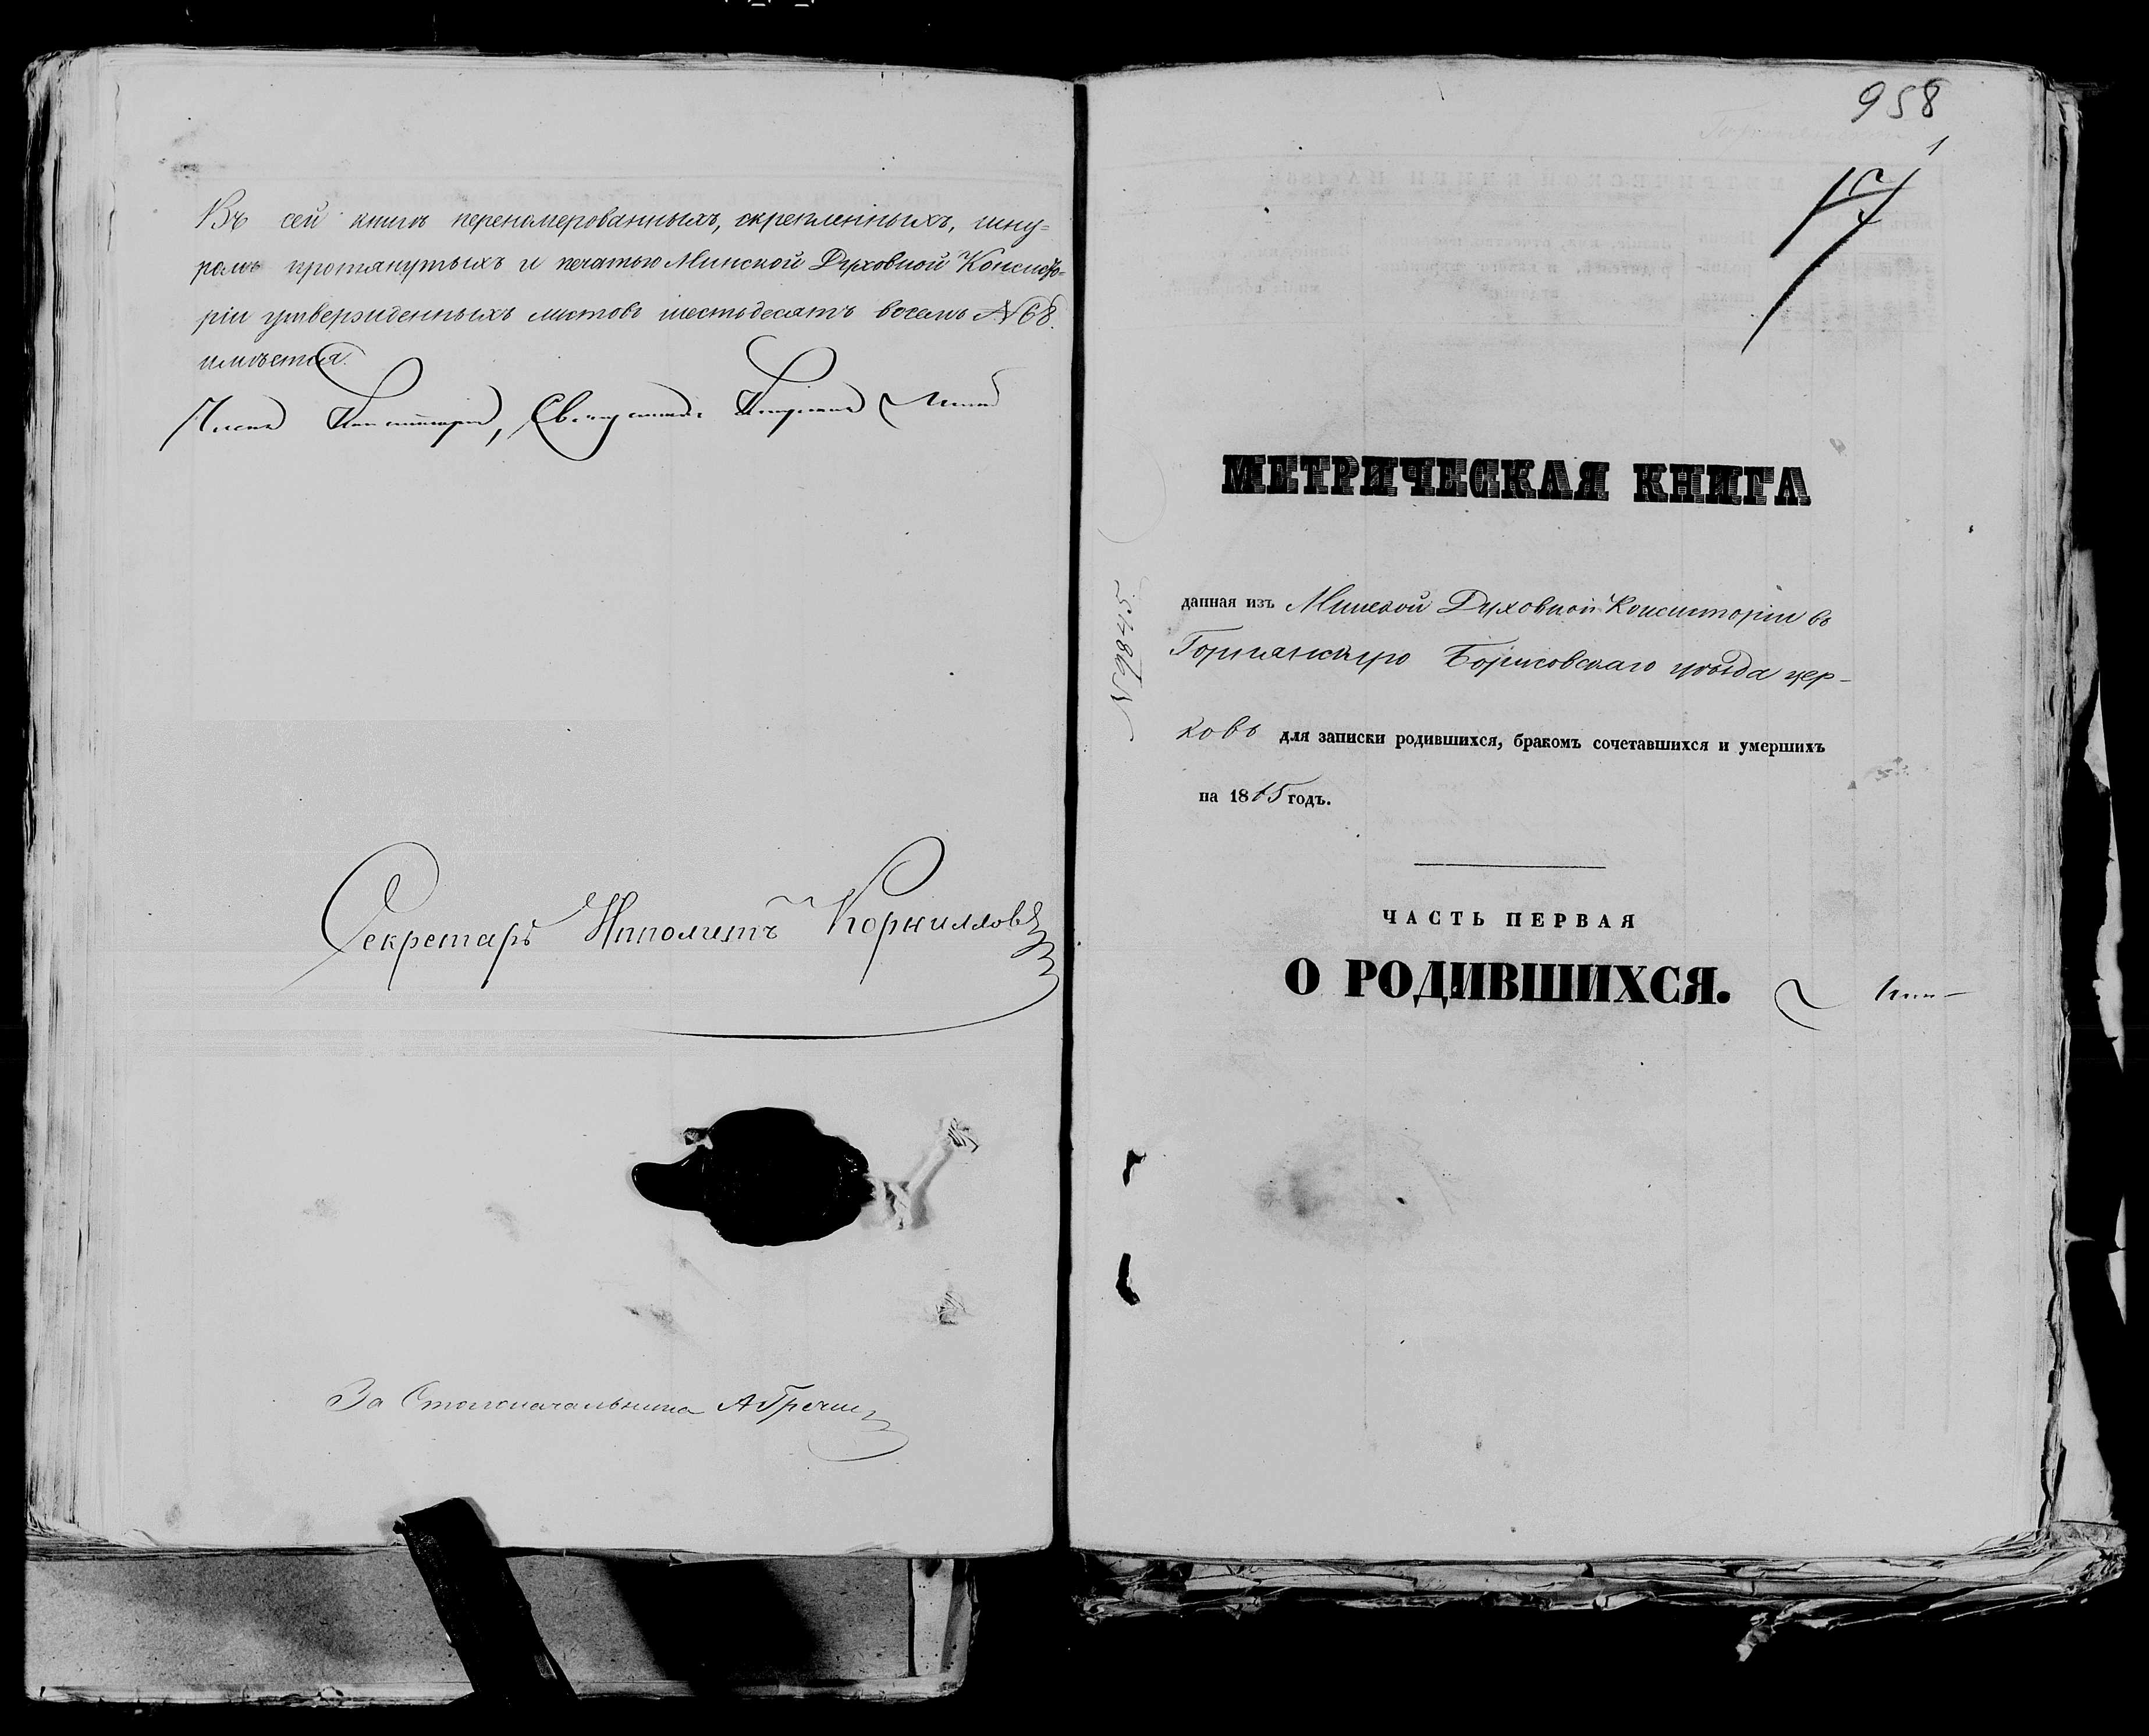 Въ сей книгѣ перенумерованныхъ, скрепленныхъ, шну-
ромъ протянутыхъ и печатью Минской Духовной Консисто-
ріи утвержденныхъ листовъ шестьдесятъ восемь №68.
имѣется.
Членъ Консисторіи, Священникъ
Секретарь Ипполитъ Корнилловъ
За Столоначальника
958
1
МЕТРИЧЕСКАЯ КНИГА
данная изъ Минской Духовной Консисторіи въ
Борисовскаго уѣзда цер-
ковь для записки родившихся, бракомъ сочетавшихся и умершихъ
на 18 годъ.
ЧАСТЬ ПЕРВАЯ
О РОДИВШИХСЯ.